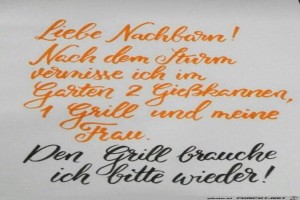 Liebe Nachbarn!
Nach dem Sturm
vermisse ich im
Garten 2 Gießkannen,
1 Grill und meine
Frau.
Den Grill brauche
ich bitte wieder!